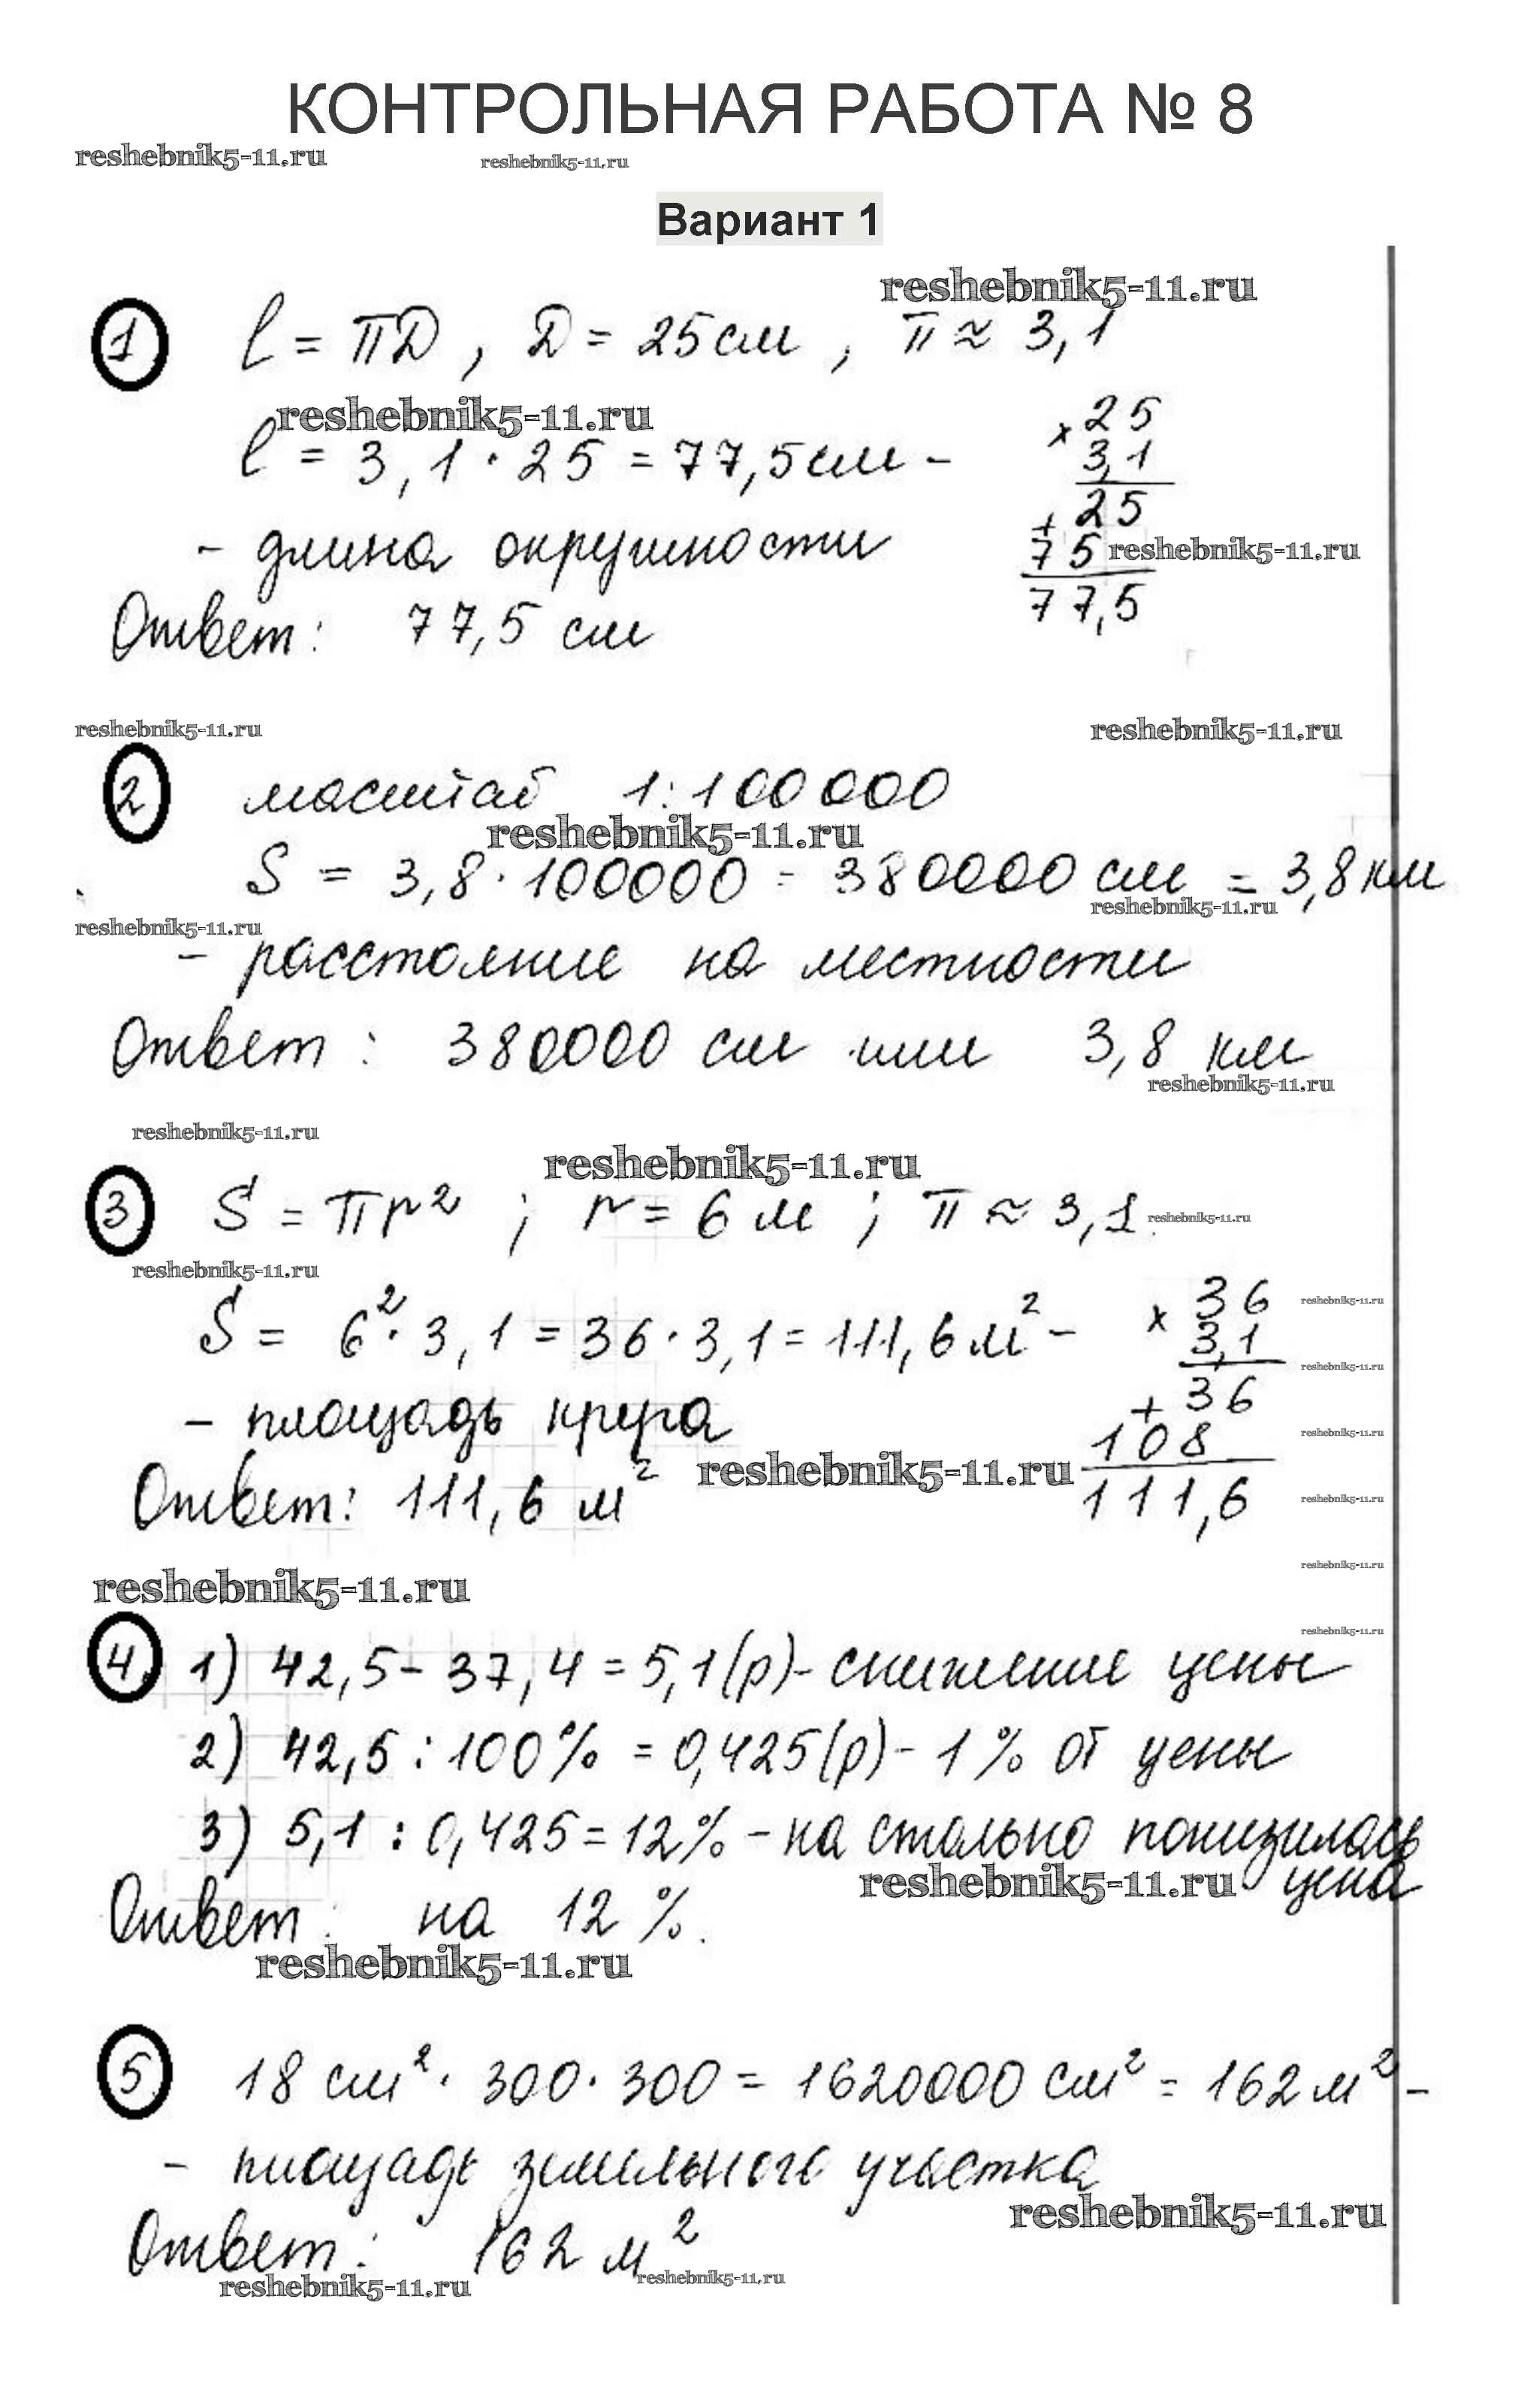 КОНТРОЛЬНАЯ РАБОТА № 8
reshebnik5-11.ru reshebnik5-11.ru
Вариант 1
reshebnik5-11.ru
1 l = πD , D = 25 см , π ≈ 3,1
reshebnik5-11.ru
l = 3,1 · 25 = 77,5 см -
× 25
3,1
25
- длина окружности
+ 75 reshebnik5-11.ru
77,5
Ответ: 77,5 см
reshebnik5-11.ru reshebnik5-11.ru
2 масштаб 1:100 000
reshebnik5-11.ru
S = 3,8 · 100000 = 380000 см = 3,8 км
reshebnik5-11.ru
reshebnik5-11.ru
- расстояние на местности
Ответ : 380000 см или 3,8 км
reshebnik5-11.ru
reshebnik5-11.ru
reshebnik5-11.ru
3 S = πr² ; r = 6 м ; π ≈ 3,1 reshebnik5-11.ru
reshebnik5-11.ru
S = 6² · 3,1 = 36 · 3,1 = 111,6 м² -
× 36 reshebnik5-11.ru
3,1 reshebnik5-11.ru
+ 36
- площадь круга
108 reshebnik5-11.ru
reshebnik5-11.ru
Ответ: 111,6 м²
111,6 reshebnik5-11.ru
reshebnik5-11.ru
reshebnik5-11.ru
reshebnik5-11.ru
4 1) 42,5 - 37,4 = 5,1 (р) - снижение цены
2) 42,5 : 100% = 0,425 (р) - 1% от цены
3) 5,1 : 0,425 = 12% - на стольно понизилась
reshebnik5-11.ru цена
Ответ: на 12 %.
reshebnik5-11.ru
5 18 см² · 300 · 300 = 1620000 см² = 162 м² -
- площадь земельного участка
reshebnik5-11.ru
Ответ : 162 м²
reshebnik5-11.ru reshebnik5-11.ru